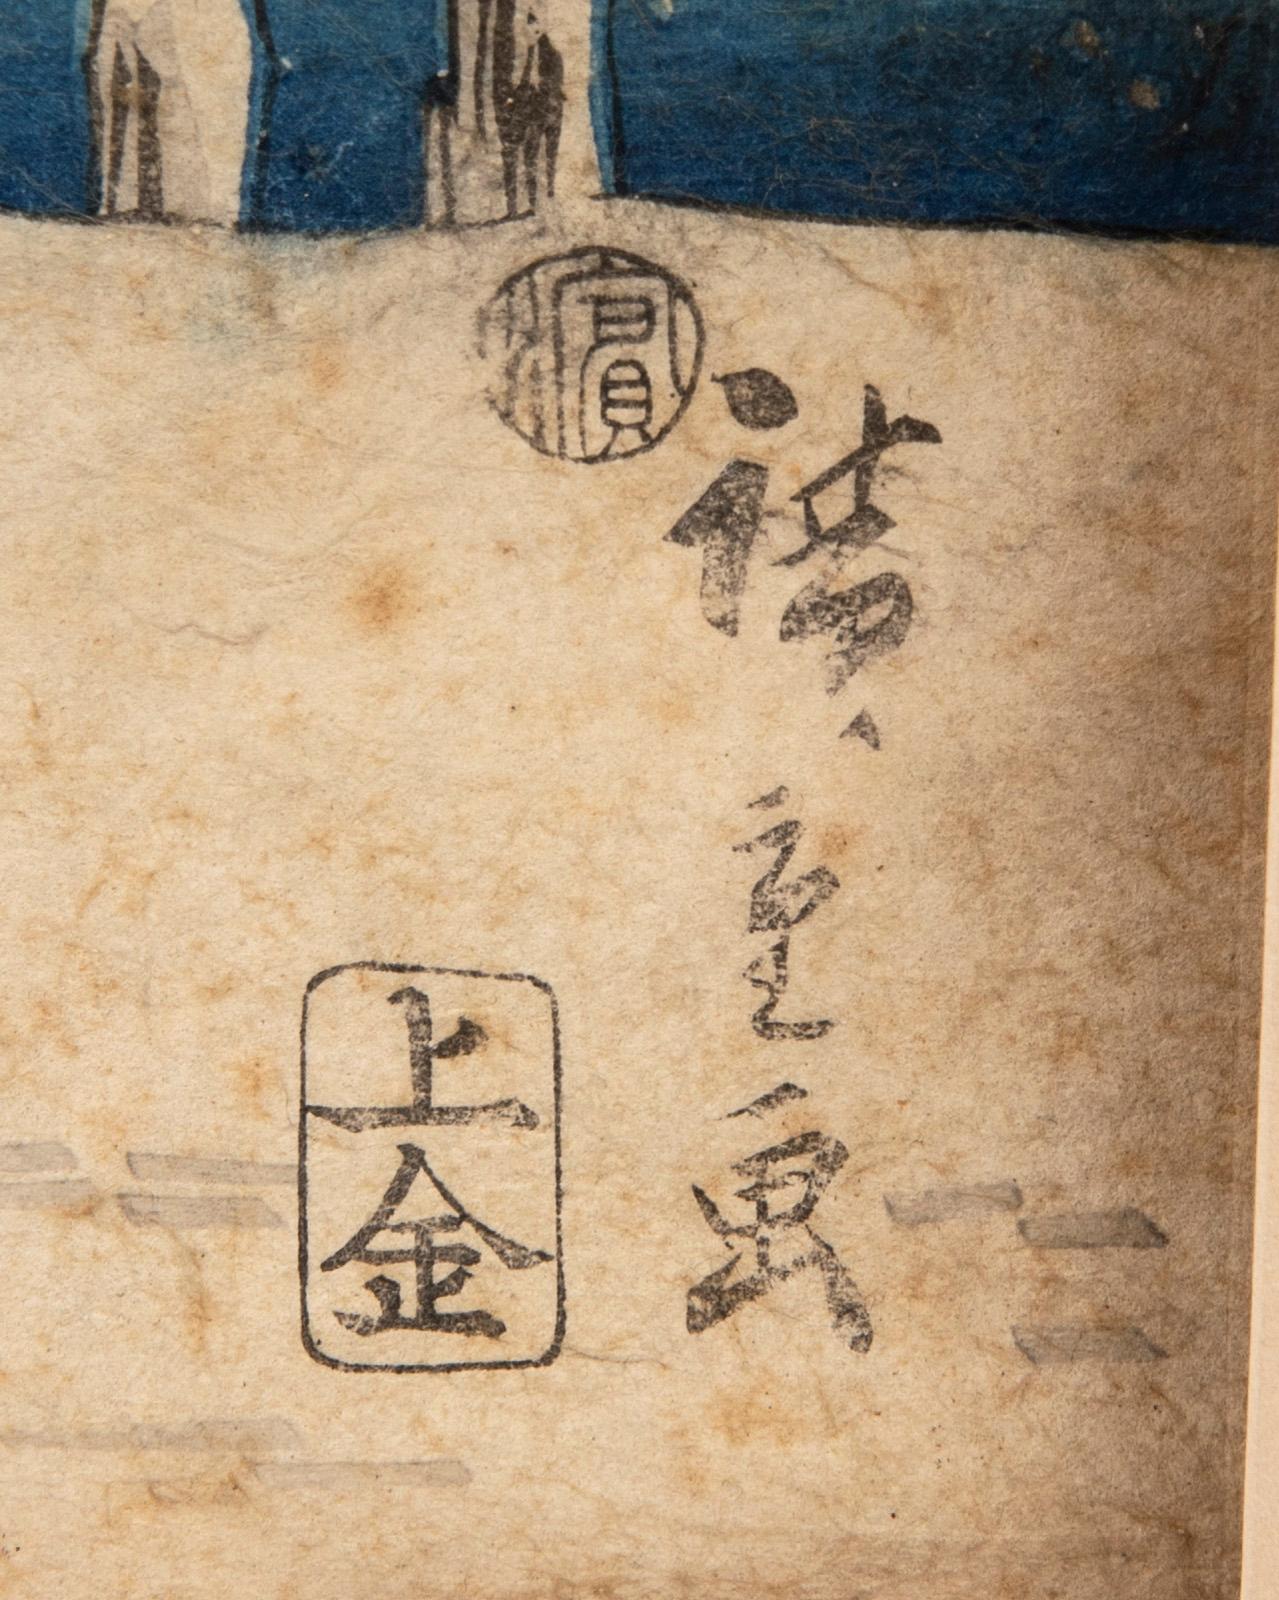 廣重画
濱
上金